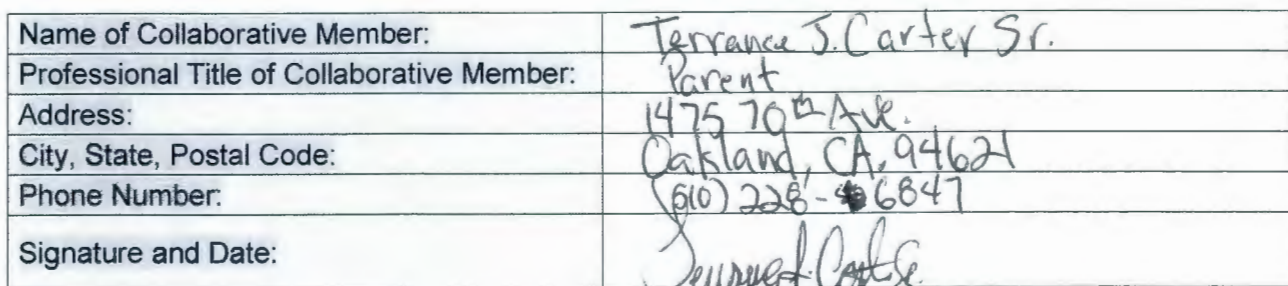 Name of Collaborative Member: Terrance J. Carter Sr.
Professional Title of Collaborative Member: Parent
Address: 1475 70th Ave.
City, State, Postal Code: Oakland, CA, 94621
Phone Number: (510) 228-6847
Signature and Date: